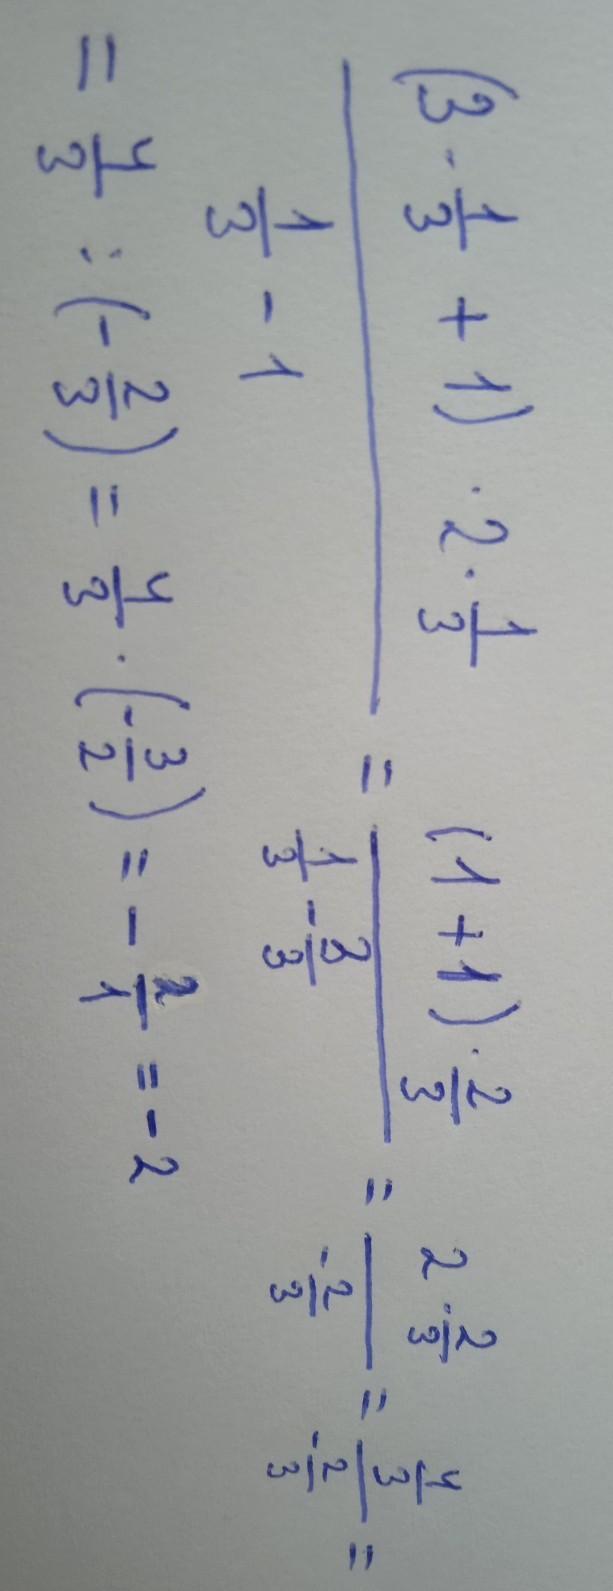 (3 · 1/3 + 1) · 2 · 1/3 / 1/3 - 1 = (1 + 1) · 2/3 / 1/3 - 3/3 = 2 · 2/3 / -2/3 = 4/3 / -2/3 =
= 4/3 : (-2/3) = 4/3 · (-3/2) = -2/1 = -2